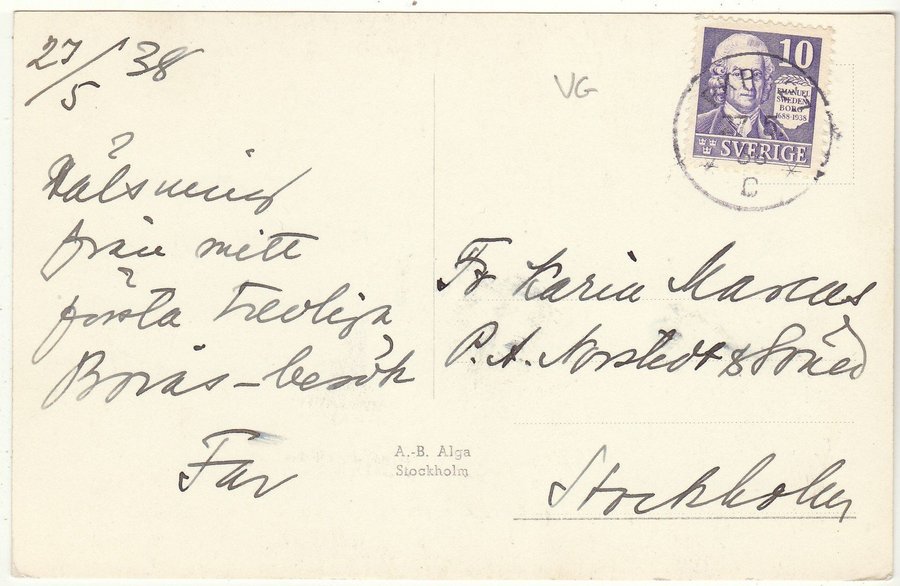 27/5 38
Hälsning
från mitt
första trevliga
Borås-besök
Far
VG
10
EMANUEL
SWEDEN
BORG
1688-1938
SVERIGE
C
Fr Karin Marcus
P. A. Norstedt & Söner
Stockholm
A.-B. Alga
Stockholm